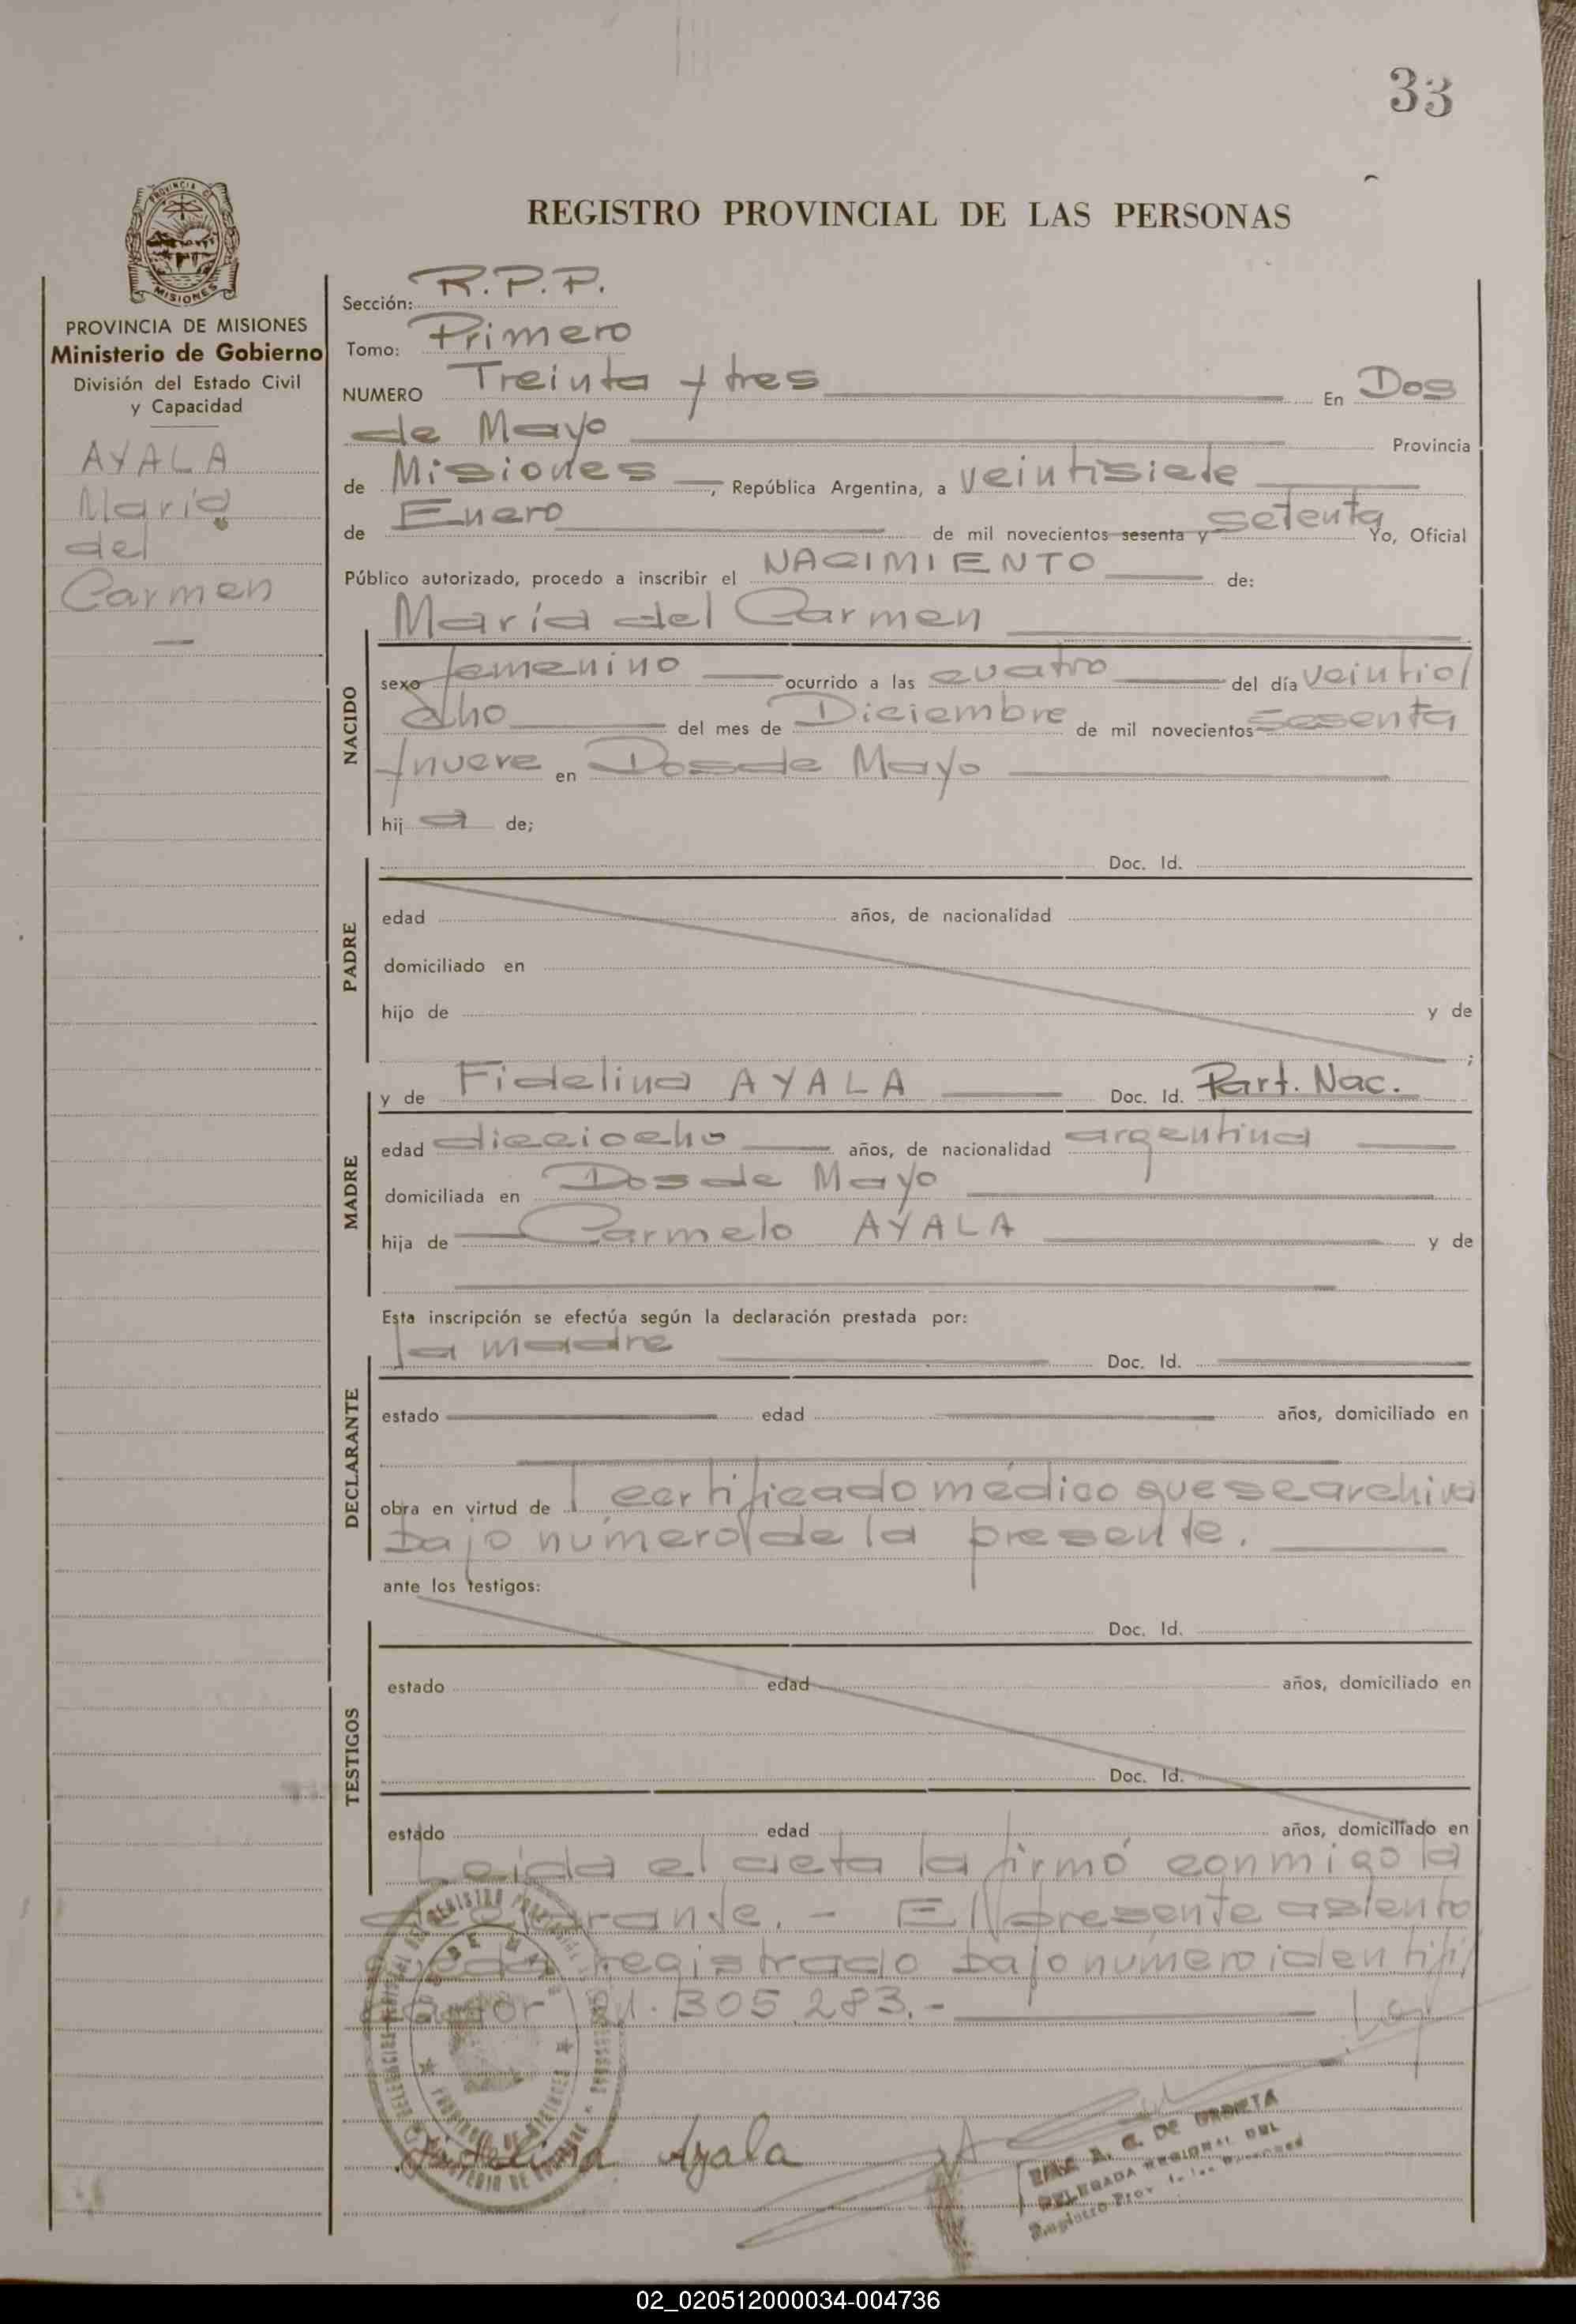 33
REGISTRO PROVINCIAL DE LAS PERSONAS
PROVINCIA DE MISIONES
Ministerio de Gobierno
División del Estado Civil
y Capacidad
AYALA
María
del
Carmen
Sección: R.P.P.
Tomo: Primero
NUMERO Treinta y tres En Dos
de Mayo Provincia
de Misiones, República Argentina, a veintisiete
de Enero de mil novecientos sesenta y setenta Yo, Oficial
Público autorizado, procedo a inscribir el NACIMIENTO de:
María del Carmen
NACIDO
sexo femenino ocurrido a las cuatro del día veintio/
cho del mes de Diciembre de mil novecientos sesenta
y nueve en Dos de Mayo
hij a de;
PADRE
Doc. Id.
edad años, de nacionalidad
domiciliado en
hijo de y de
;
MADRE
y de Fidelina AYALA Doc. Id. Part. Nac.
edad dieciocho años, de nacionalidad argentina
domiciliada en Dos de Mayo
hija de Carmelo AYALA y de
Esta inscripción se efectúa según la declaración prestada por:
DECLARANTE
la madre Doc. Id.
estado edad años, domiciliado en
obra en virtud de l certificado médico que se archiva
bajo número de la presente.
ante los testigos:
TESTIGOS
Doc. Id.
estado edad años, domiciliado en
Doc. Id.
estado edad años, domiciliado en
Leida el acta la firmó conmigo la
declarante. - El presente asiento
queda registrado bajo número identifi/
cador 21.305.283.-
Fidelina Ayala
A. G. DE URRETA
DELEGADA REGIONAL DEL
Registro Prov. de las Personas
02_020512000034-004736